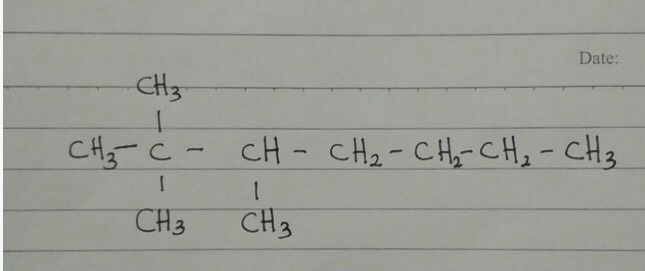 Date:
CH₃
|
CH₃ - C - CH - CH₂ - CH₂ - CH₂ - CH₃
| |
CH₃ CH₃